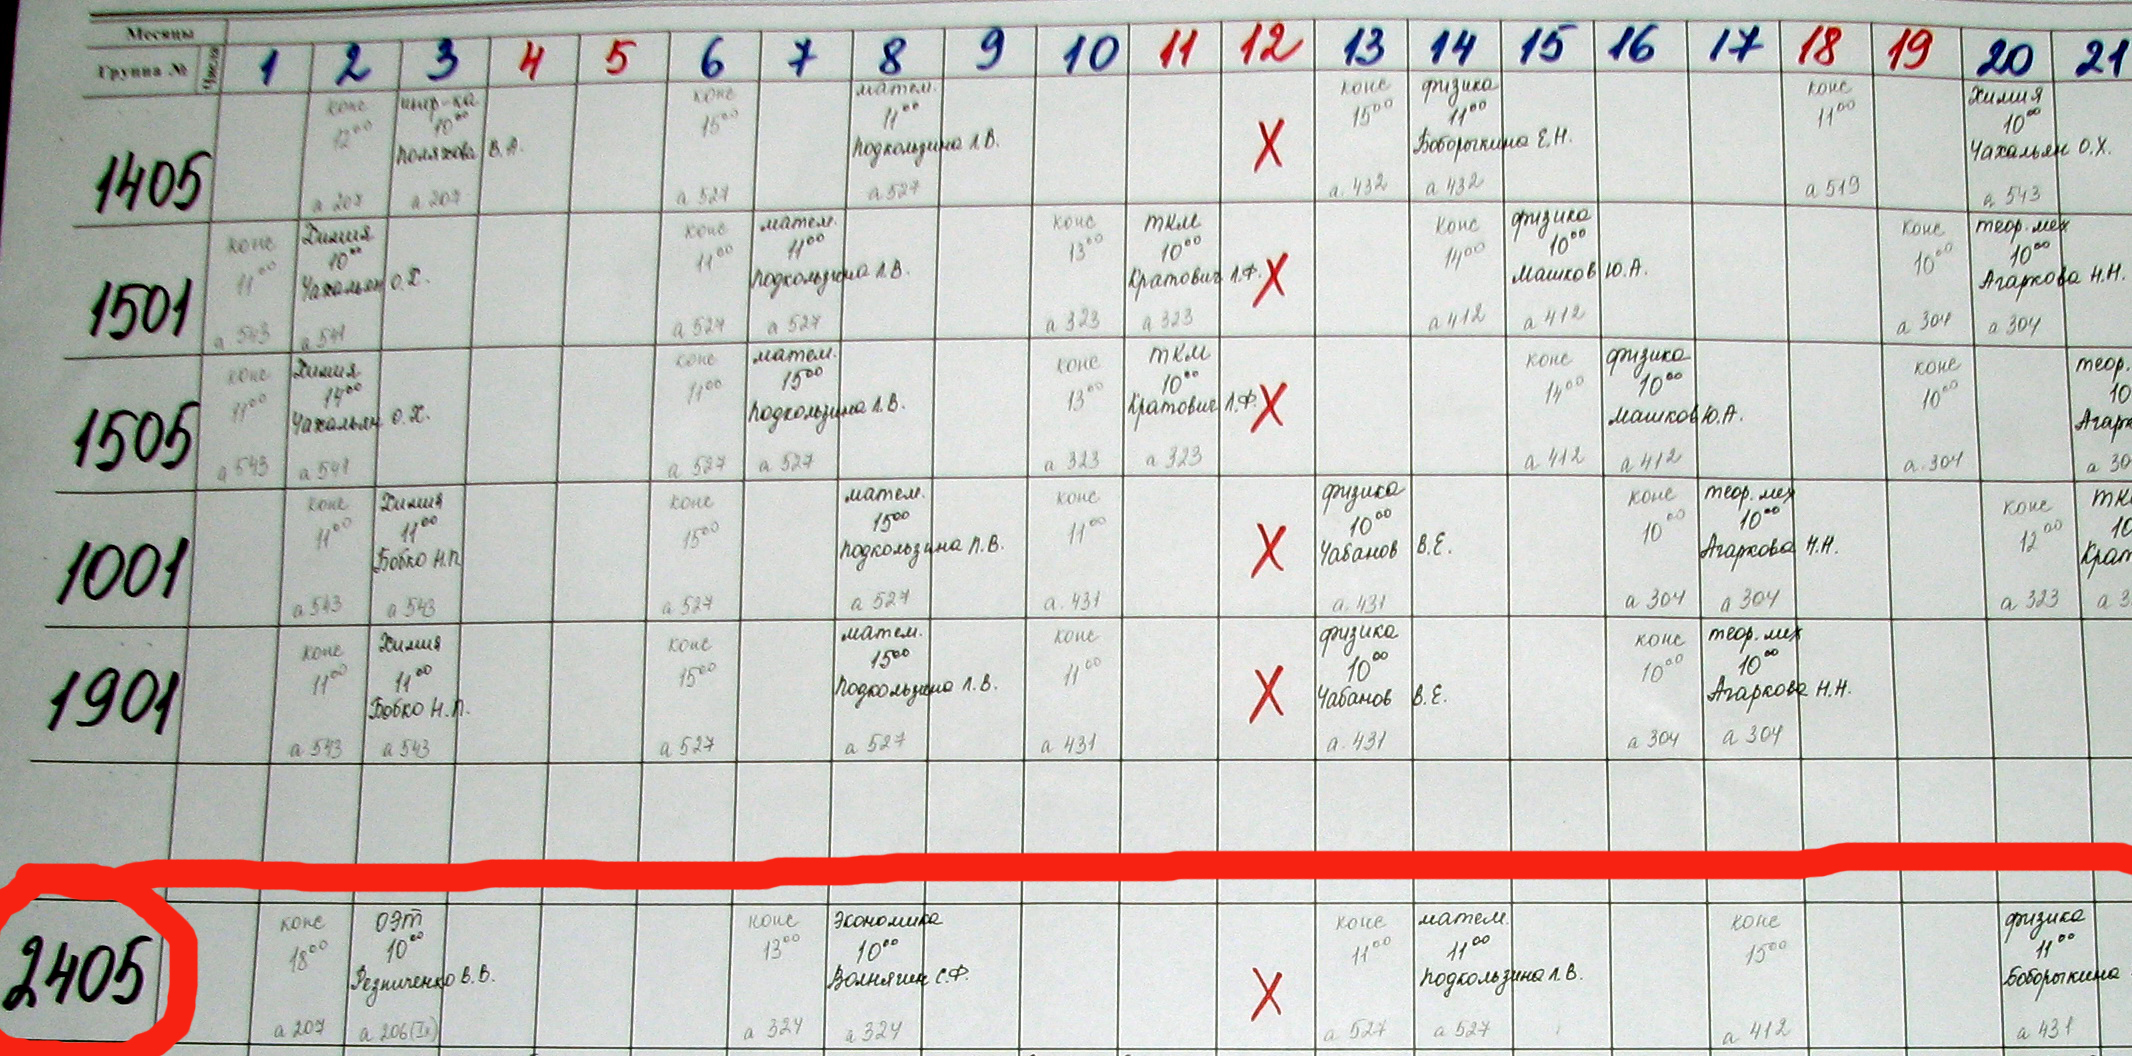 Месяцы
Группа № Числа 1 2 3 4 5 6 7 8 9 10 11 12 13 14 15 16 17 18 19 20 21
1405
конс 12⁰⁰ а 207
инф-ка 10⁰⁰ Поляхова В.А. а 207
конс 15⁰⁰ а 527
матем. 11⁰⁰ Подкользина Л.В. а 527
X
конс 15⁰⁰ а. 432
физика 11⁰⁰ Боборыкина Е.Н. а 432
конс 11⁰⁰ а 519
Химия 10⁰⁰ Чахальян О.Х. а 543
1501
конс 11⁰⁰ а 543
Химия 10⁰⁰ Чахальян О.Х. а 541
конс 11⁰⁰ а 527
матем. 11⁰⁰ Подкользина Л.В. а 527
конс 13⁰⁰ а 323
ТКМ 10⁰⁰ Кратович Л.Ф. а 323
X
конс 14⁰⁰ а 412
физика 10⁰⁰ Машков Ю.А. а 412
конс 10⁰⁰ а 304
теор. мех 10⁰⁰ Агаркова Н.Н. а 304
1505
конс 11⁰⁰ а 543
Химия 14⁰⁰ Чахальян О.Х. а 541
конс 11⁰⁰ а 527
матем. 15⁰⁰ Подкользина Л.В. а 527
конс 13⁰⁰ а 323
ТКМ 10⁰⁰ Кратович Л.Ф. а 323
X
конс 14⁰⁰ а 412
физика 10⁰⁰ Машков Ю.А. а 412
конс 10⁰⁰ а. 304
теор. 10 Агарк а 30
1001
конс 11⁰⁰ а 543
Химия 11⁰⁰ Бобко Н.П. а 543
конс 15⁰⁰ а 527
матем. 15⁰⁰ Подкользина Л.В. а 527
конс 11⁰⁰ а. 431
X
физика 10⁰⁰ Чабанов В.Е. а. 431
конс 10⁰⁰ а 304
теор. мех 10⁰⁰ Агаркова Н.Н. а 304
конс 12⁰⁰ а 323
ТКМ 10 Крат а 3
1901
конс 11⁰⁰ а 543
Химия 11⁰⁰ Бобко Н.П. а 543
конс 15⁰⁰ а 527
матем. 15⁰⁰ Подкользина Л.В. а 527
конс 11⁰⁰ а 431
X
физика 10⁰⁰ Чабанов В.Е. а. 431
конс 10⁰⁰ а 304
теор. мех 10⁰⁰ Агаркова Н.Н. а 304
2405
конс 18⁰⁰ а 207
ОЭТ 10⁰⁰ Резниченко В.В. а 206
конс 13⁰⁰ а 324
Экономика 10⁰⁰ Волнягин С.Ф. а 324
X
конс 11⁰⁰ а 527
матем. 11⁰⁰ Подкользина Л.В. а 527
конс 15⁰⁰ а 412
физика 11⁰⁰ Боборыкина а 431